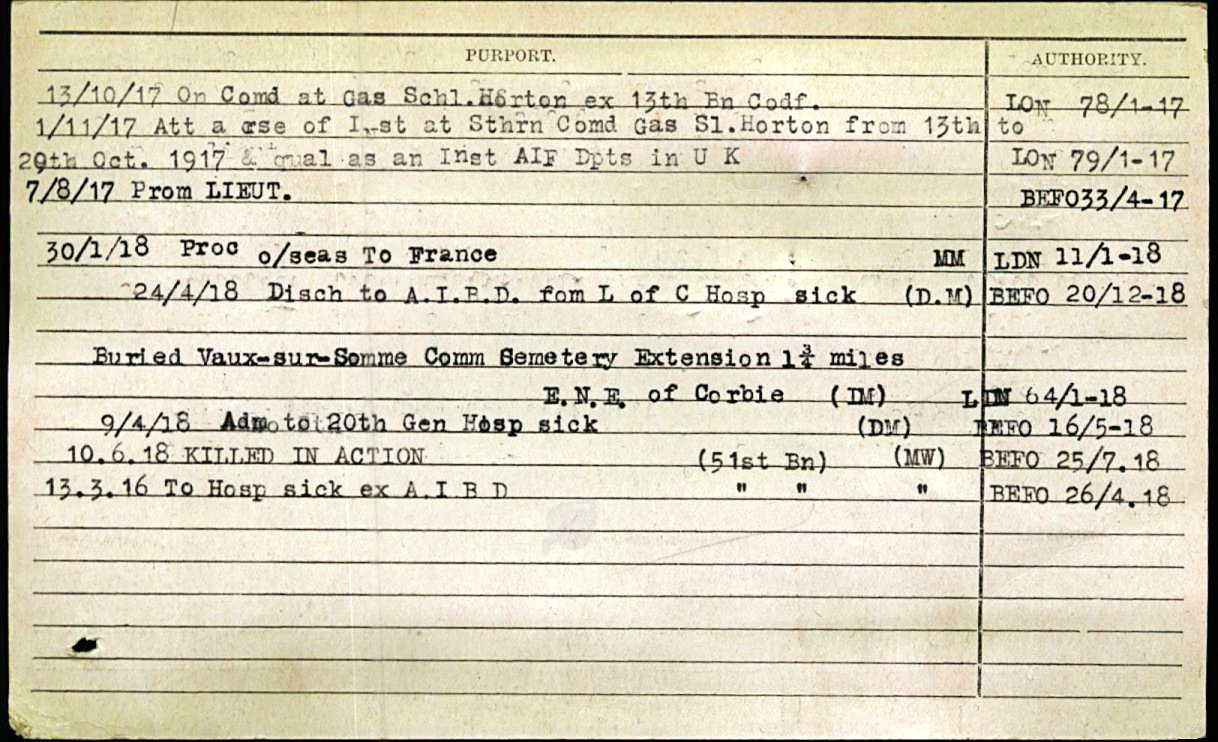 PURPORT. AUTHORITY.
13/10/17 On Comd at Gas Schl.Horton ex 13th Bn Codf. LON 78/1-17
1/11/17 Att a crse of Inst at Sthrn Comd Gas Sl.Horton from 13th to
29th Oct. 1917 & qual as an Inst AIF Dpts in U K LON 79/1-17
7/8/17 Prom LIEUT. BEFO33/4-17
30/1/18 Proc o/seas To France MM LDN 11/1-18
24/4/18 Disch to A.I.B.D. fom L of C Hosp sick (D.M) BEFO 20/12-18
Buried Vaux-sur-Somme Comm Semetery Extension 1¾ miles
E.N.E. of Corbie (DM) LDN 64/1-18
9/4/18 Adm to 20th Gen Hosp sick (DM) BEFO 16/5-18
10.6.18 KILLED IN ACTION (51st Bn) (MW) BEFO 25/7.18
13.3.16 To Hosp sick ex A.I B D " " " BEFO 26/4.18